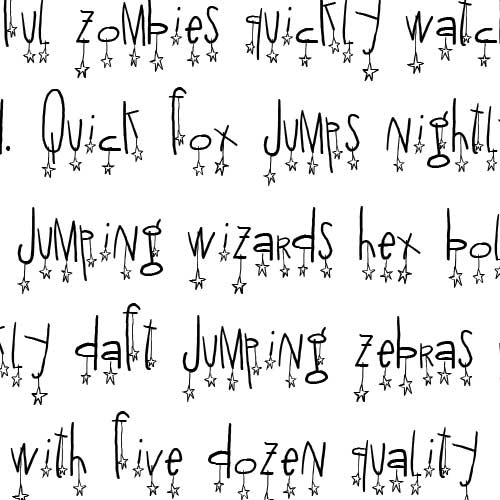 ful zombies quickly watc
. Quick fox jumps nightl
jumping wizards hex bol
kly daft jumping zebras
with five dozen quality